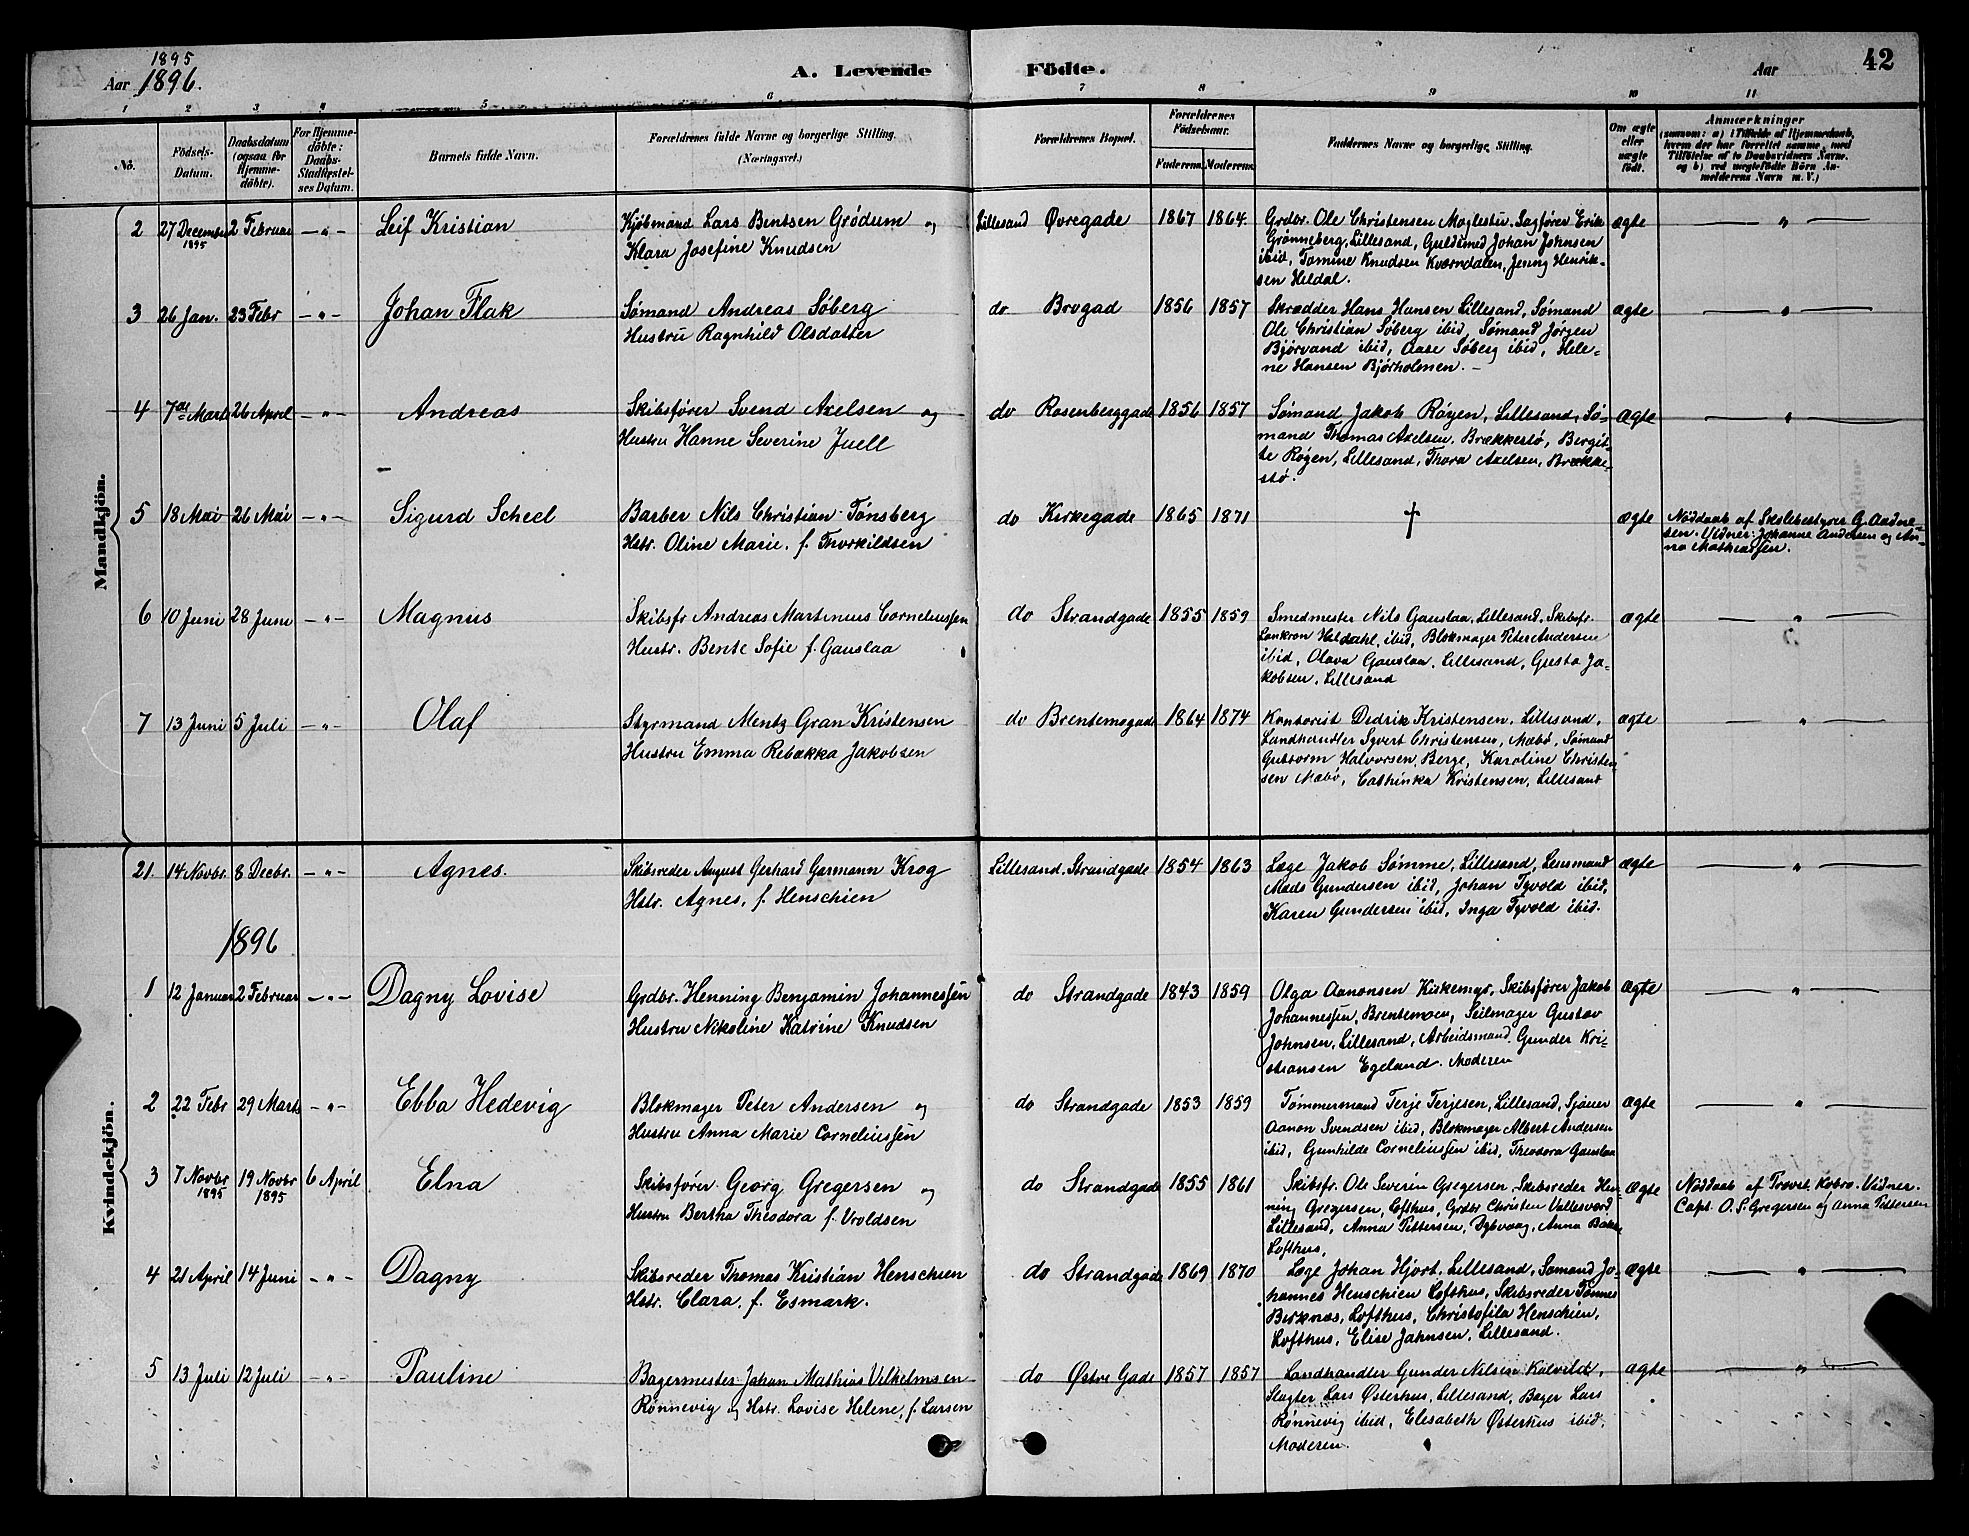 1895
Aar 1896.
A. Levende Födte.
Aar
42
1 2 3 4 5 6 7 8 9 10 11
No.
Födsels-Datum.
Daabsdatum (ogsaa for Hjemme-döbte).
For Hjemme-döbte: Daabs-Stadfæstel-ses Datum.
Barnets fulde Navn.
Forældrenes fulde Navne og borgerlige Stilling. (Næringsvei.)
Forældrenes Bopæl.
Forældrenes Födselsaar.
Faderens. Moderens.
Faddernes Navne og borgerlige Stilling.
Om ægte eller uægte födt.
Anmærkninger
(saasom: a) i Tilfælde af Hjemmedaab,
hvem der har forrettet samme, med
Tilföielse af to Daabsvidners Navne.
og b) ved uægtefödte Börn An-
melderens Navn m. V.)
Mandkjön.
2 27 December 2 Februar — " — Leif Kristian Kjöbmand Lars Bentsen Grödum og Lillesand Øvregade 1867 1864. Grdbr. Ole Christensen Moglestu, Sagfører Erik ægte — " —
1895 Klara Josefine Knudsen Grønneberg, Lillesand, Guldsmed Johan Johnsen
ibid, Tomine Knudsen Kværndalen, Jenny Henrik-
sen Heldal.
3 26 Jan. 23 Febr — " — Johan Flak Sømand Andreas Søberg do Brogad 1856 1857 Skrædder Hans Hansen Lillesand, Sømand ægte — " —
Hustru Ragnhild Olsdatter Ole Christian Søberg ibid, Sømand Jørgen
Bjørvand ibid, Aase Søberg ibid, Hele-
ne Hansen Bjørholmen. —
4 7de Marts 26 April — " — Andreas Skibsfører Svend Axelsen og do Rosenberggade 1856 1857 Sømand Jakob Røyen, Lillesand, Sø- ægte — " —
Hustru Hanne Severine Juell mand Thomas Axelsen, Brækkestø, Bergit-
te Røyen, Lillesand, Thora Axelsen, Brække-
stø.
5 18 Mai 26 Mai — " — Sigurd Scheel Barber Nils Christian Tønsberg do Kirkegade 1865 1871 † ægte Nöddaab af Skolebestyrer G. Aadne-
Hstr. Oline Marie, f. Thorkildsen sen. Vidner: Johanne Andersen og An-
na Mathiassen.
6 10 Juni 28 Juni — " — Magnus Skibsfr Andreas Martinus Corneliussen do Strandgade 1855 1859 Smedmester Nils Gauslaa, Lillesand, Skibsfr. ægte — " —
Hustr. Bente Sofie f. Gauslaa Lankron Heldahl, ibid, Blokmager Peter Andersen
ibid, Olava Gauslaa, Lillesand, Gusta Ja-
kobsen, Lillesand
7 13 Juni 5 Juli — " — Olaf Styrmand Mentz Gran Kristensen do Brentemogade 1864 1874 Kontorist Dedrik Kristensen, Lillesand, ægte — " —
Hustru Emma Rebækka Jakobsen Landhandler Syvert Christensen, Mæbø, Sømand
Guttorm Halvorsen, Berge, Karoline Christen-
sen Mæbø, Cathinka Kristensen, Lillesand
Kvindekjön.
21 14 Novbr. 8 Decbr. — " — Agnes. Skibsreder August Gerhard Garmann Krog Lillesand. Strandgade 1854 1863 Læge Jakob Sømme, Lillesand, Lensmand ægte — " —
Hstr. Agnes, f. Henschien Mads Gundersen ibid, Johan Tyvold ibid,
Karen Gundersen ibid, Inga Tyvold ibid.
1896
1 12 Januar 2 Februar — " — Dagny Lovise Grdbr. Henning Benjamin Johannessen do Strandgade 1843 1859 Olga Aanonsen Kirkemyr, Skibsfører Jakob ægte — " —
Hustru Nikoline Katrine Knudsen Johannessen, Brentemoen, Seilmager Gustav
Johnsen, Lillesand, Arbeidsmand Gunder Kri-
stiansen Egeland. Moderen
2 22 Febr 29 Marts — " — Ebba Hedevig Blokmager Peter Andersen og do Strandgade 1853 1859 Tømmermand Terje Terjesen, Lillesand, Sjauer ægte — " —
Hustru Anna Marie Corneliussen Aanon Svendsen ibid, Blokmager Albert Andersen
ibid, Gunhilde Corneliussen ibid, Theodora Gauslaa
3 7 Novbr 19 Novbr 6 April Elna Skibsfører Georg Gregersen og do Strandgade 1855 1861 Skibsfr. Ole Severin Gregersen, Skibsreder Hen- ægte Nöddaab af Provst Kobro. Vidner.
1895 1895 Hustru Bertha Theodora f. Vroldsen ning Gregersen, Lofthus, Grdbr Christen Vallesverd Capt. O. S. Gregersen og Anna Pettersen
Lillesand, Anna Pettersen, Dybvaag, Anna Bakke
Lofthus,
4 21 April 14 Juni — " — Dagny Skibsreder Thomas Kristian Henschien do Strandgade 1869 1870 Læge Johan Hjort, Lillesand, Sømand Jo- ægte — " —
Hstr. Clara, f. Esmark. hannes Henschien Lofthus, Skibsreder Tønnes
Birknæs, Lofthus, Christofila Henschien,
Lofthus, Elise Jahnsen, Lillesand.
5 13 Juli 12 Juli — " — Pauline Bagermester Johan Mathias Vilhelmsen do Østre Gade 1857 1857 Landhandler Gunder Nilsen Kalvild, ægte — " —
Rønnevig og Hstr. Lovise Helene, f. Larsen Slagter Lars Østerhus, Lillesand, Bager Lars
Rønnevig ibid, Elisabeth Østerhus ibid,
Moderen.